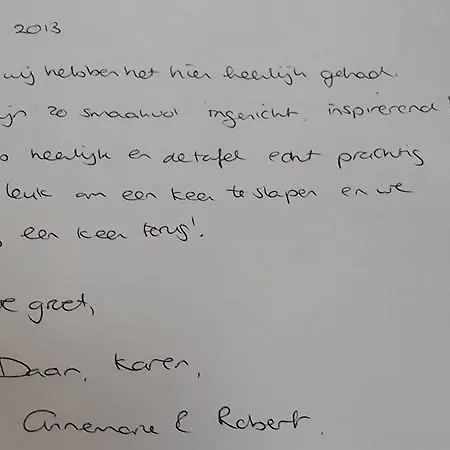 2013
wij hebben het hier heerlijk gehad.
ijn zo smaakvol ingericht. inspirerend!
o heerlijk en de tafel echt prachtig
leuk om een keer te slapen en we
een keer terug!
e groet,
Daan, Karen,
Annemarie & Robert.